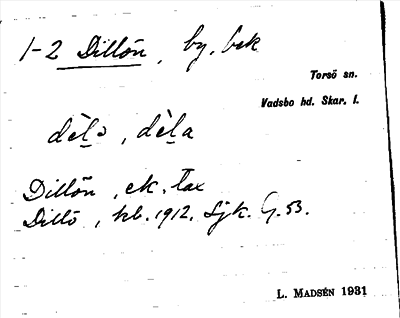 1-2 Dillön, by, bek
Torsö sn.
Vadsbo hd. Skar. l.
dèḻə, dèḻa
Dillön, ek. Tax
Dillö, kb. 1912, Sjk. G. 53.
L. MADSÉN 1931